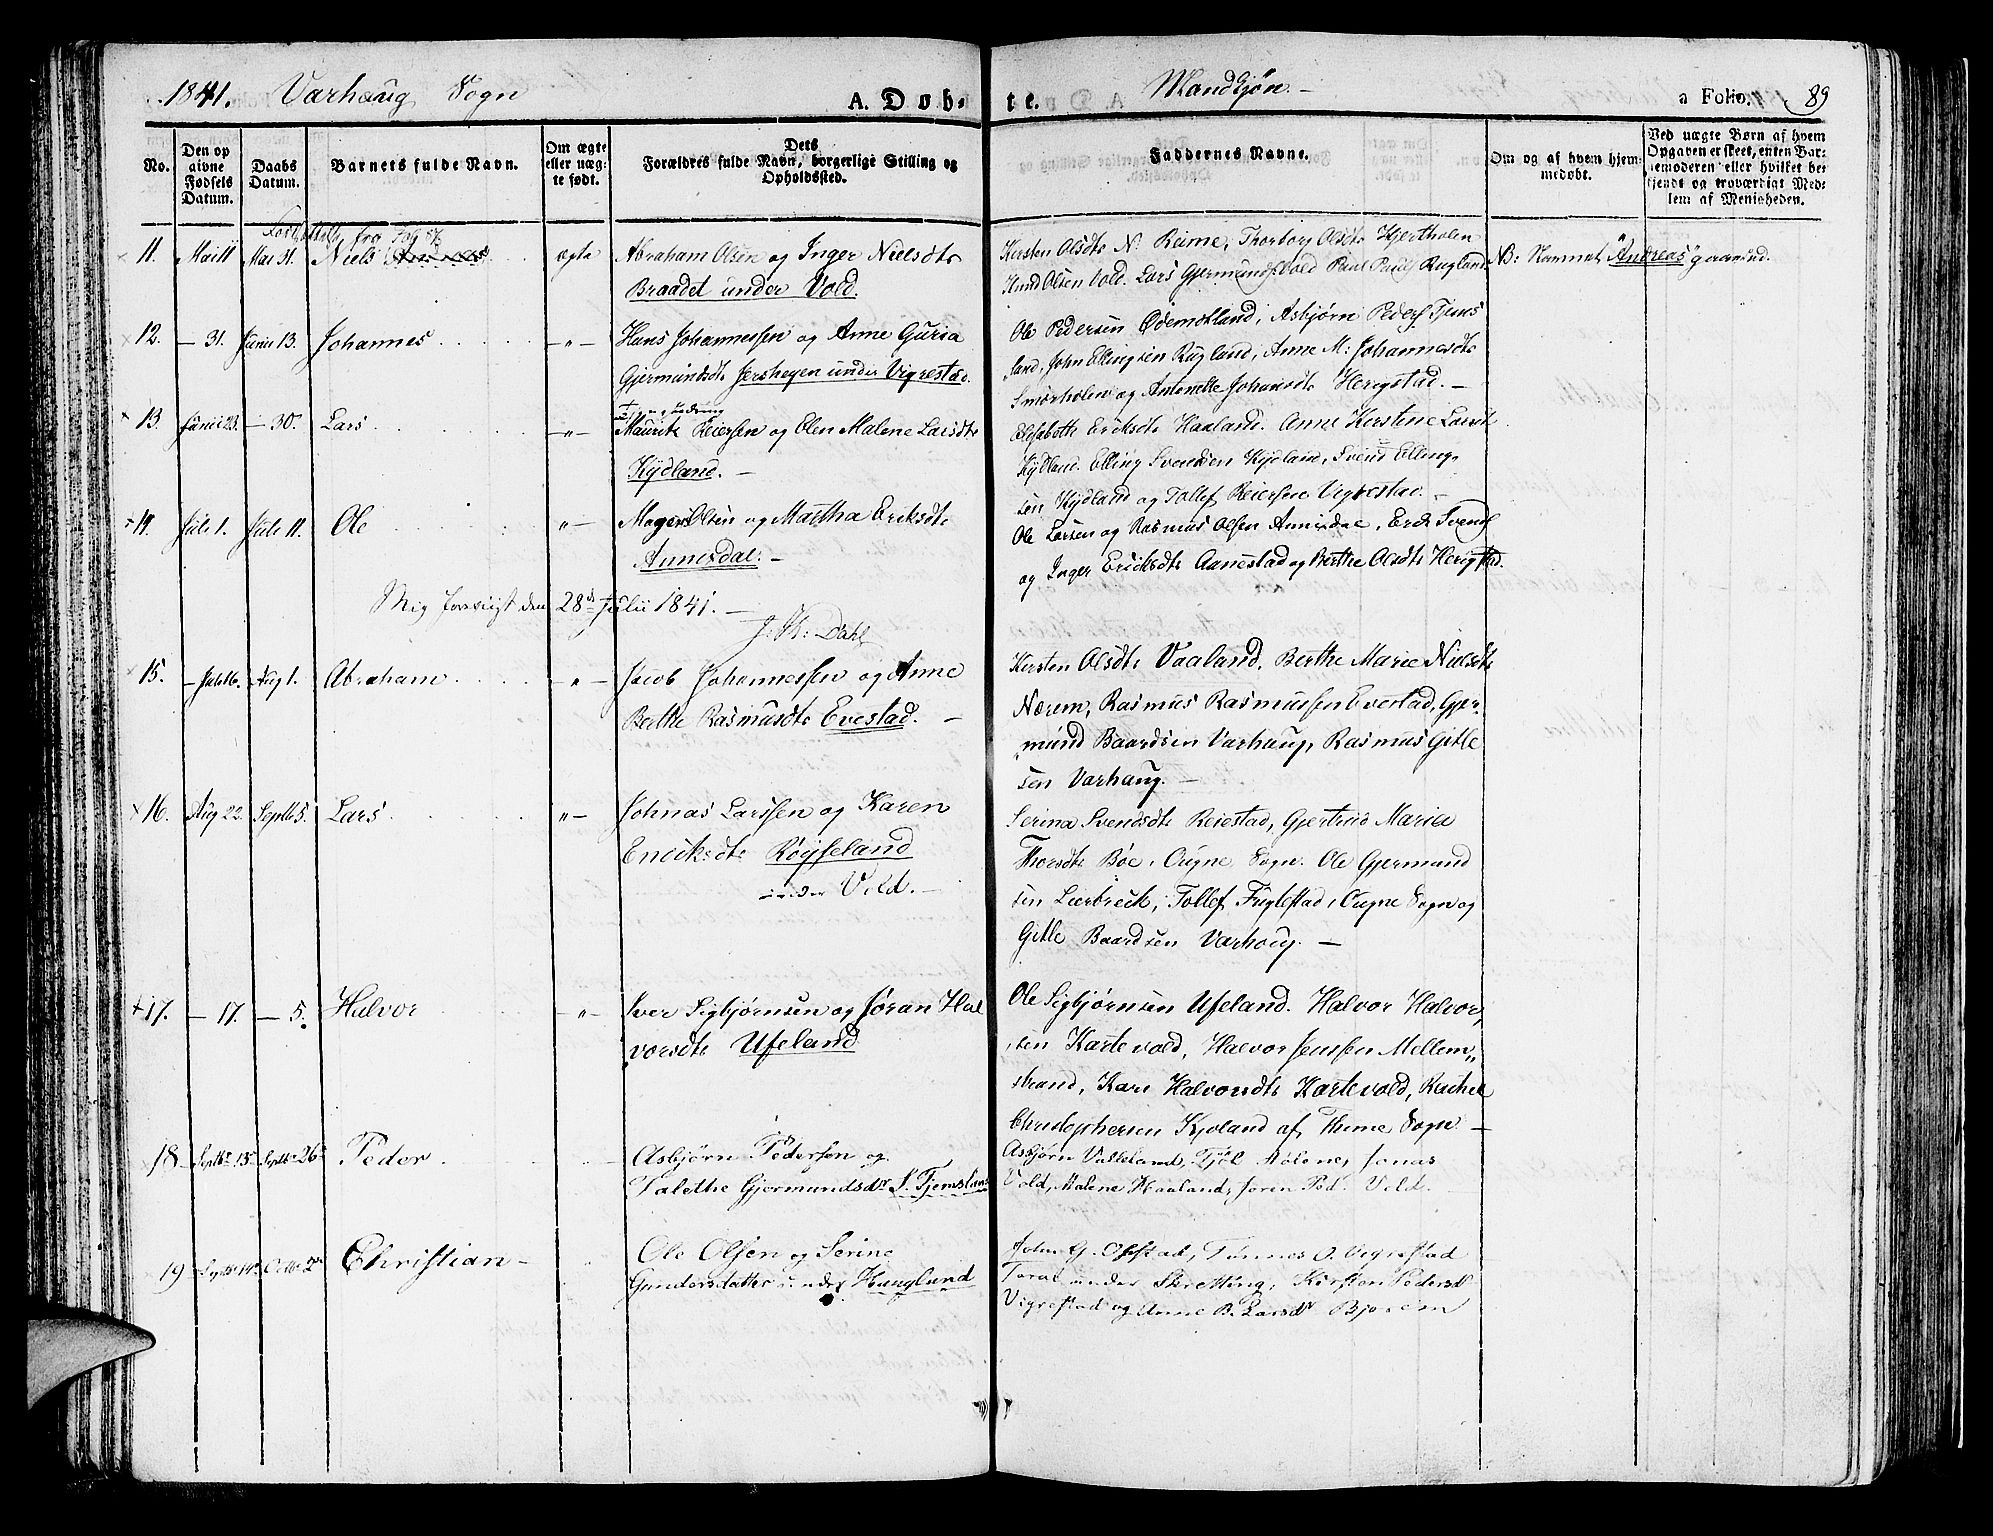 1841. Varhaug Sogn
A. Døb-
te.
Mandkjøn.
a Folio.
89
No.
Den op
givne
Fødsels
Datum.
Daabs
Datum.
Barnets fulde Navn.
Om ægte
eller uæg-
te født.
Dets
Forældres fulde Navn, borgerlige Stilling og
Opholdssted.
Faddernes Navne.
Om og af hvem hjem-
medøbt.
Ved uægte Børn af hvem
Opgaven er skeet, enten Bar-
nemoderen eller hvilket be
kjendt og troværdigt Med-
lem af Menigheden.
fra Fol 87
11. Mai 11 Mai 31. Niels Andreas ægte Abraham Olsen og Inger Nielsdtr
Braadet under Vold.
Kirsten Olsdtr N. Reime, Thorborg Olsdtr Hjertholen
Knud Olsen Vold. Lars Gjermunds. Vold Paul Pauls Rugland.
NB: Navnet "Andreas" 
12. — 31. Junii 13. Johannes —"— Hans Johannessen og Anne Guria
Gjermundsdtr Jersheyen under Vigrestad.
Ole Pedersen Ødemotland, Asbjørn Peders Tjems
land, John Ellingsen Rugland, Anne M: Johannesdtr
Smørholen og Antonette Johansdtr Herigstad. —
13. Junii 23. — 30. Lars —"— Mauritz Reiersen og Elen Malene Larsdtr
Kydland. —
Elisabeth Eriksdtr Haaland. Anne Kerstene Larsdt
Kydland. Elling Svendsen Kydland, Svend Elling-
sen Kydland og Tollef Reiersen Vigrestad. —
14. Julii 1. Julii 11. Ole —"— Mogens Olsen og Martha Eriksdtr
Annisdal. —
Ole Larsen og Rasmus Olsen Annisdal, Erik Svends
og Inger Eriksdtr Aanestad og Berthe Olsdtr Herigstad.
Mig forevist den 28de Julii 1841. —
J. K: Dahl
15. — Juli 16. Aug 1. Abraham —"— Jacob Johannessen og Anne
Berthe Rasmusdtr Evestad. —
Kirsten Olsdtr Vaaland. Berthe Marie Nielsdtr
Nærem, Rasmus Rasmussen Evestad, Gjer-
mund Baardsen Varhaug, Rasmus Gitle
sen Varhaug. —
16. Aug 22. Septb 5. Lars —"— Johnas Larssen og Karen
Endiksdtr Røyseland
under Vold. —
Serina Svendsdtr Reiestad, Gjertrud Maria
Thorsdtr Bøe, Ougne Sogn. Ole Gjermund
sen Lierbreck, Tollef Fuglestad, Ougne Sogn og
Gitle Baardsen Varhoug. —
17. — 17. — 5. Halvor —"— Iver Sigbjørnsen og Jøran Hal
vorsdtr Ufeland
Ole Sigbjørnsen Ufeland. Halvor Halvor
sen Kartevold, Halvor Jensen Mellem
strand, Kari Halvorsdtr Kartevold, Rachel
Christophersen Kjoland af Thime Sogn —
18 Septbr 13 Septbr 26 Peder Asbjørn Pedersen og
Talethe Gjermundsdtr S. Tjemsland
Asbjørn Valheland, Tjøl Mølene, Jonas
Vold, Malene Haaland, Joren Ped. Vold.
19 Septbr Octbr Christian — Ole Olsen og Serine
Gundersdatter under Hauglund
John G. Opstad, Tønnes O. Vigrestad
Toral under Skretting, Kirsten Pedersdtr
Vigrestad og Anne B. Larsdtr Bjorem